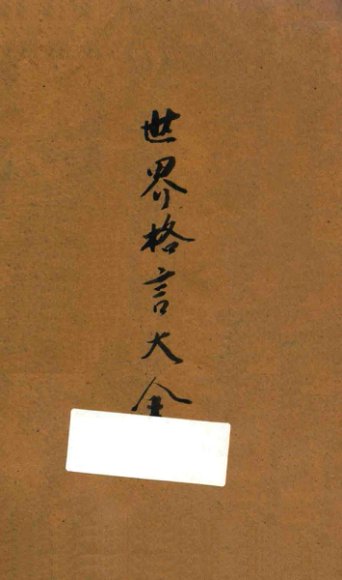 世界格言大全